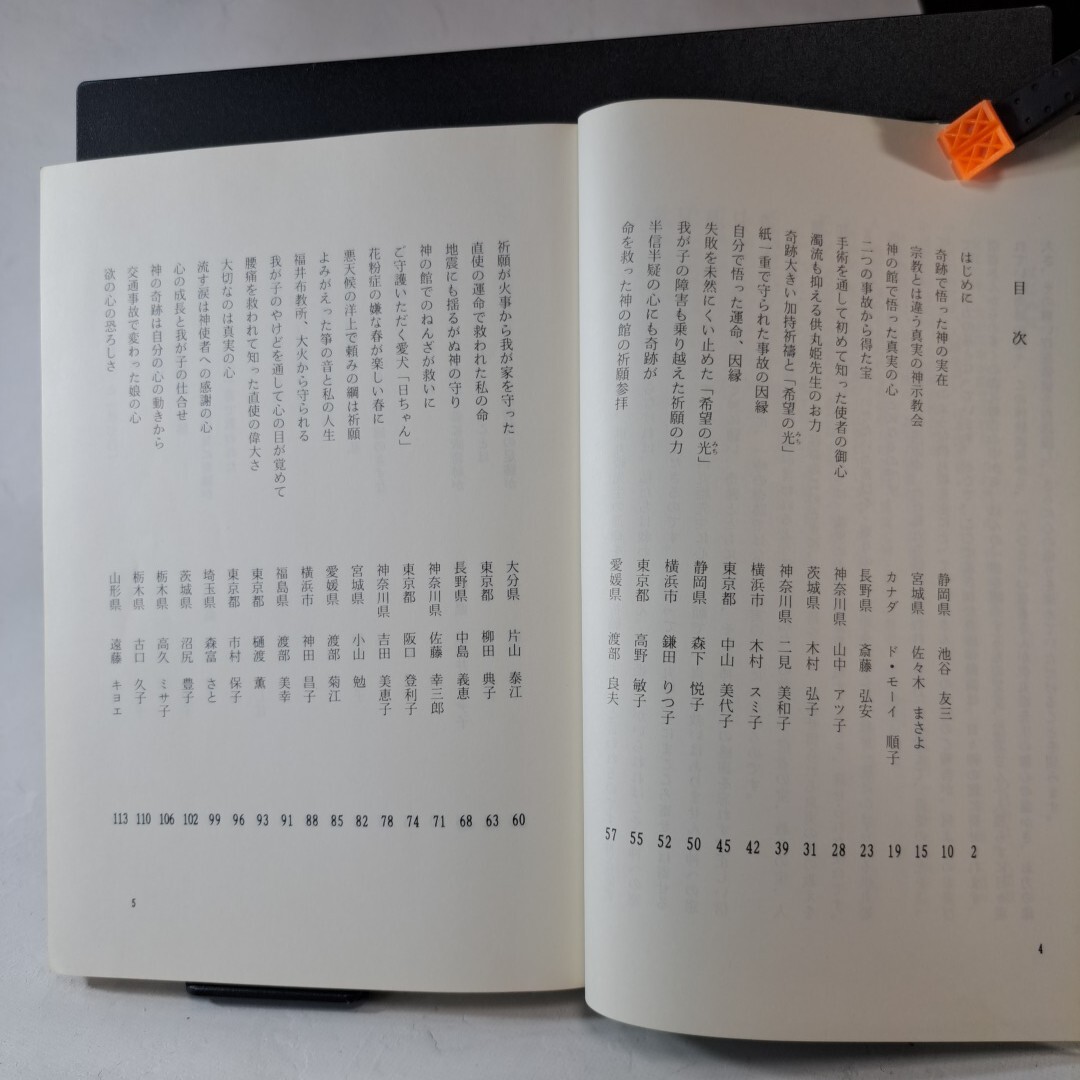 目次
はじめに 2
奇跡で悟った神の実在 静岡県 池谷 友三 10
宗教とは違う真実の神示教会 宮城県 佐々木 まさよ 15
神の館で悟った真実の心 カナダ ド・モーイ 順子 19
二つの事故から得た宝 長野県 斎藤 弘安 23
手術を通して初めて知った使者の御心 神奈川県 山中 アツ子 28
濁流も抑える供丸姫先生のお力 茨城県 木村 弘子 31
奇跡大きい加持祈禱と「希望の光」 みち 神奈川県 二見 美和子 39
紙一重で守られた事故の因縁 横浜市 木村 スミ子 42
自分で悟った運命、因縁 東京都 中山 美代子 45
失敗を未然にくい止めた「希望の光」 みち 静岡県 森下 悦子 50
我が子の障害も乗り越えた祈願の力 横浜市 鎌田 りつ子 52
半信半疑の心にも奇跡が 東京都 高野 敏子 55
命を救った神の館の祈願参拝 愛媛県 渡部 良夫 57
4
祈願が火事から我が家を守った 大分県 片山 泰江 60
直使の運命で救われた私の命 東京都 柳田 典子 63
地震にも揺るがぬ神の守り 長野県 中島 義恵 68
神の館でのねんざが救いに 神奈川県 佐藤 幸三郎 71
ご守護いただく愛犬「日ちゃん」 東京都 阪口 登利子 74
花粉症の嫌な春が楽しい春に 神奈川県 吉田 美恵子 78
悪天候の洋上で頼みの綱は祈願 宮城県 小山 勉 82
よみがえった箏の音と私の人生 愛媛県 渡部 菊江 85
福井布教所、大火から守られる 横浜市 神田 昌子 88
我が子のやけどを通して心の目が覚めて 福島県 渡部 美幸 91
腰痛を救われて知った直使の偉大さ 東京都 樋渡 薫 93
大切なのは真実の心 東京都 市村 保子 96
流す涙は神使者への感謝の心 埼玉県 森富 さと 99
心の成長と我が子の仕合せ 茨城県 沼尻 豊子 102
神の奇跡は自分の心の動きから 栃木県 高久 ミサ子 106
交通事故で変わった娘の心 栃木県 古口 久子 110
欲の心の恐ろしさ 山形県 遠藤 キヨェ 113
5